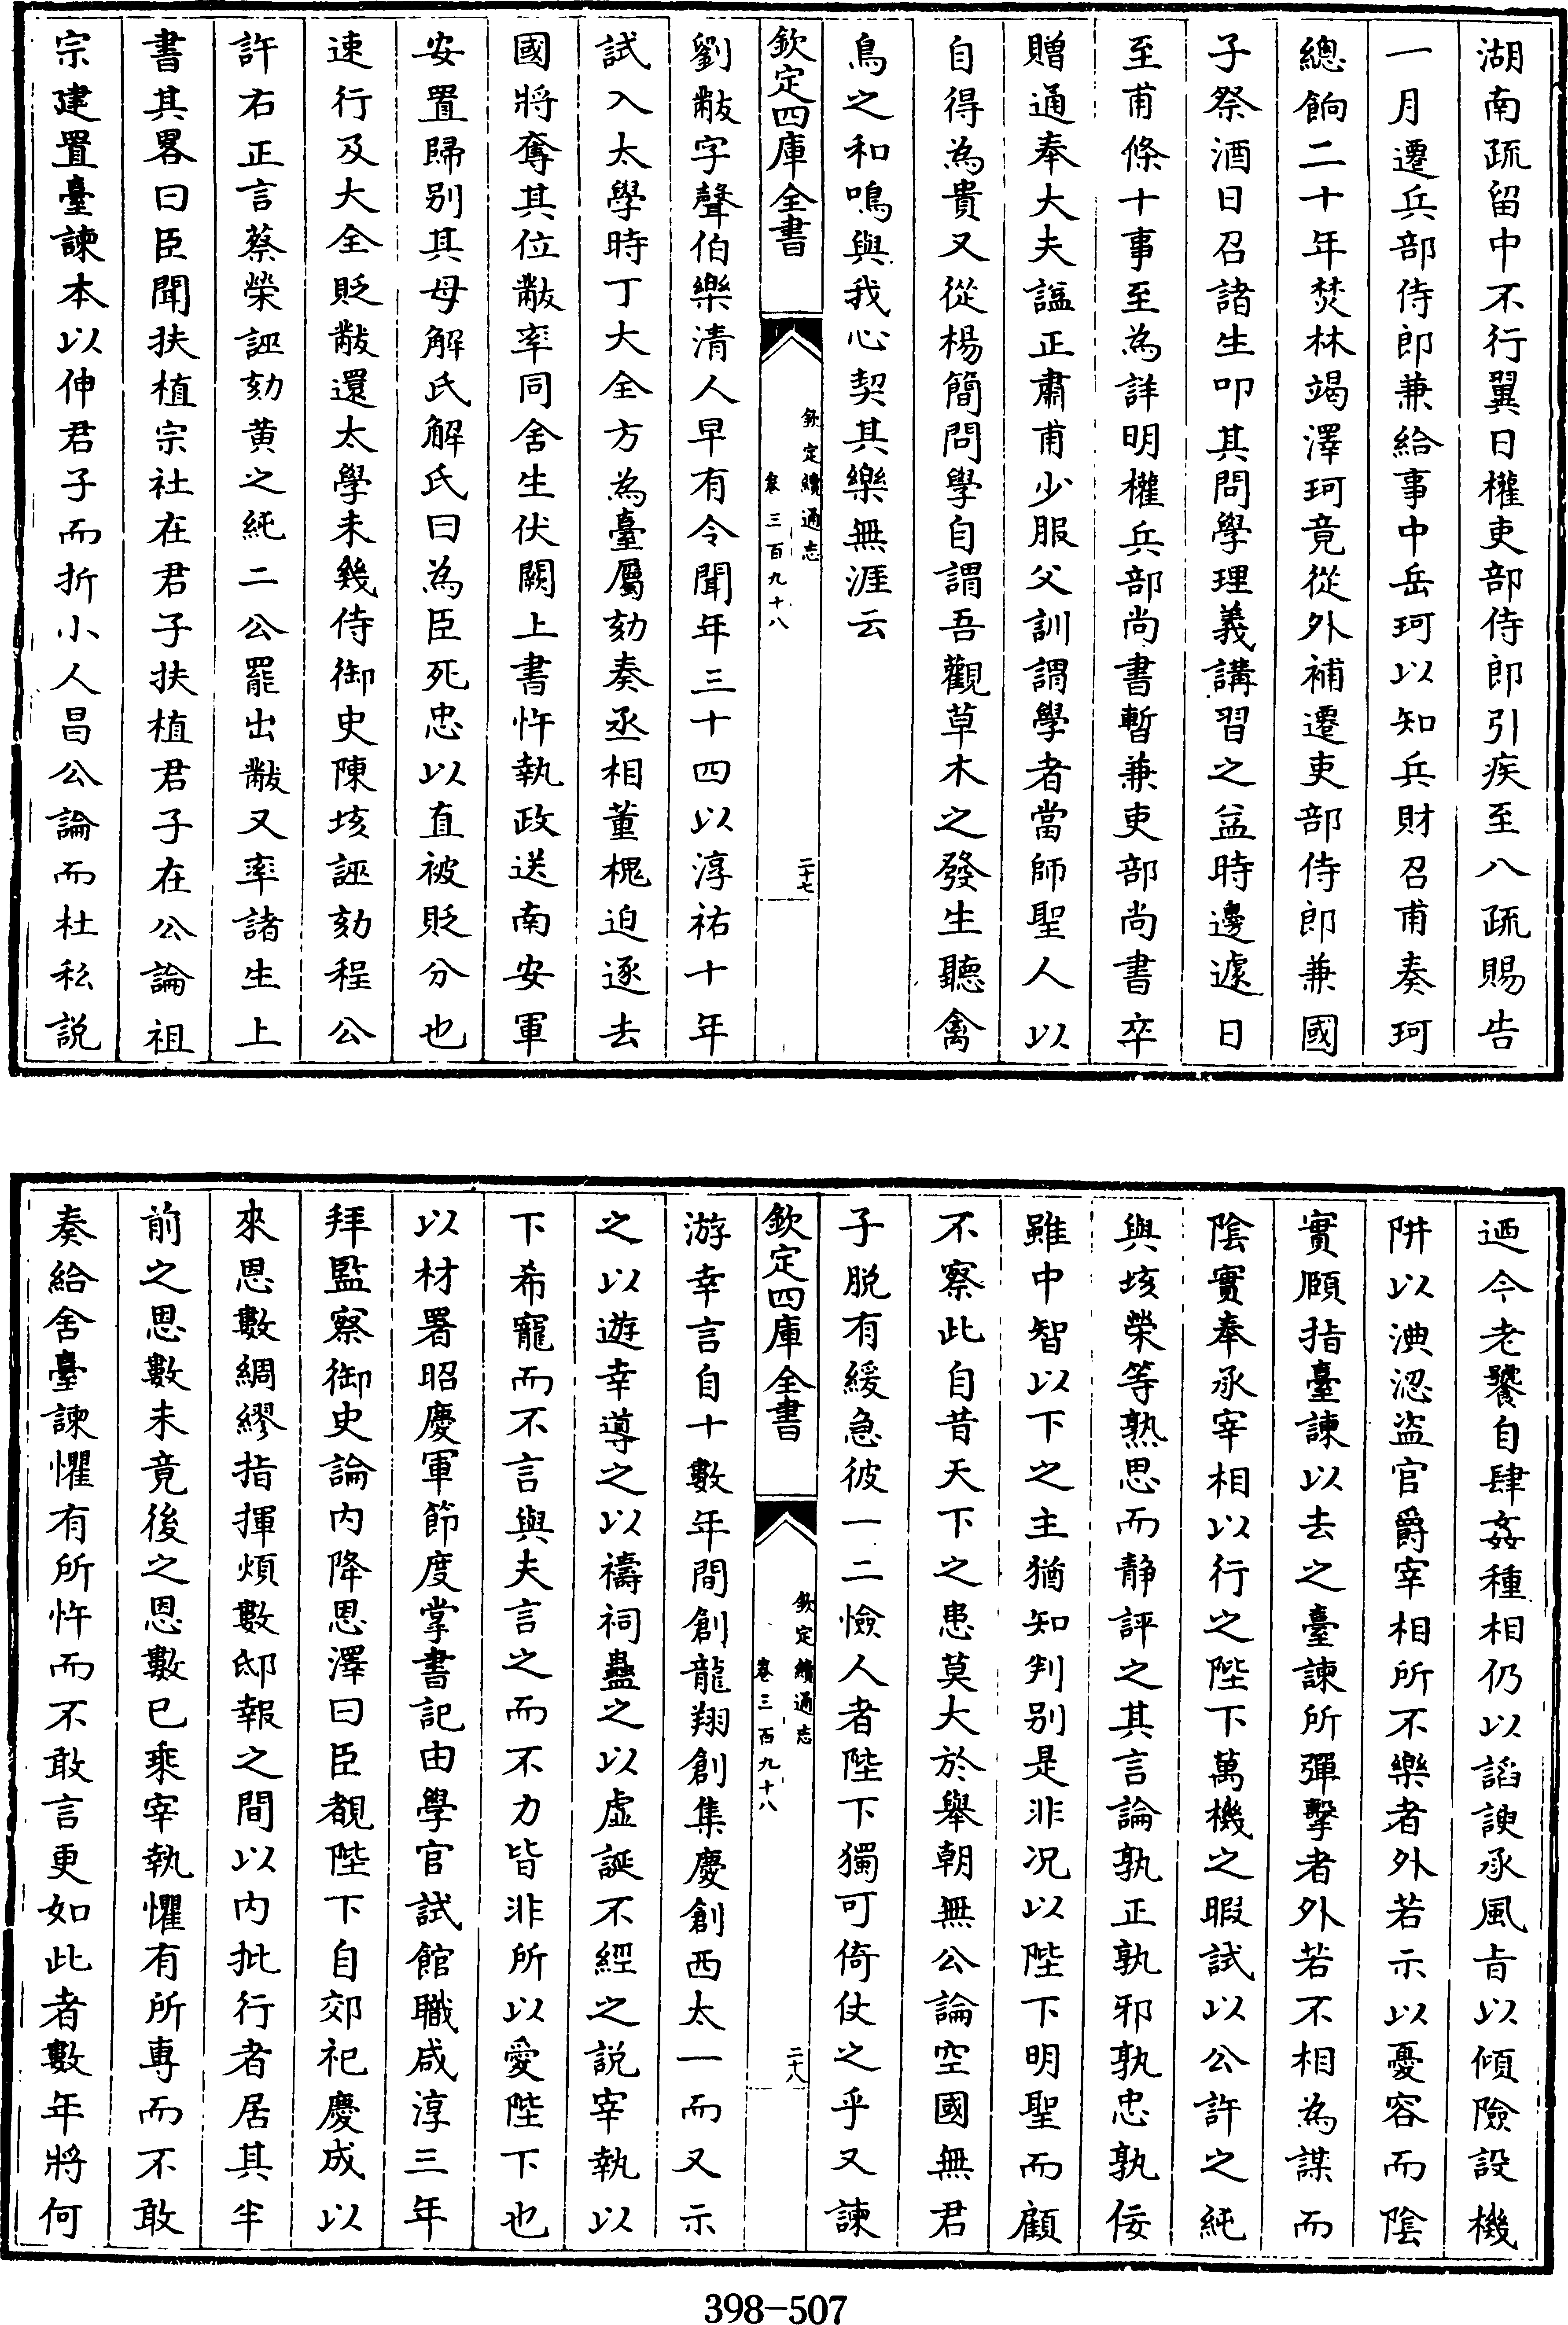 湖南疏留中不行翼日權吏部侍郎引疾至八疏賜告
一月遷兵部侍郎兼給事中岳珂以知兵財召甫奏珂
總餉二十年焚林竭澤珂竟從外補遷吏部侍郎兼國
子祭酒日召諸生叩其問學理義講習之益時邊遽日
至甫條十事至為詳明權兵部尚書暫兼吏部尚書卒
贈通奉大夫諡正肅甫少服父訓謂學者當師聖人以
自得為貴又從楊簡問學自謂吾觀草木之發生聽禽
鳥之和鳴與我心契其樂無涯云
欽定四庫全書
欽定續通志
卷三百九十八
二十七
劉黻字聲伯樂清人早有令聞年三十四以淳祐十年
試入太學時丁大全方為臺屬劾奏丞相董槐迫逐去
國將奪其位黻率同舍生伏闕上書忤執政送南安軍
安置歸别其母解氏解氏曰為臣死忠以直被貶分也
速行及大全貶黻還太學未幾侍御史陳垓誣劾程公
許右正言蔡榮誣劾黄之純二公罷出黻又率諸生上
書其畧曰臣聞扶植宗社在君子扶植君子在公論祖
宗建置臺諫本以伸君子而折小人昌公論而杜私説
迺今老饕自肆姦種相仍以謟諛承風旨以傾險設機
阱以淟涊盜官爵宰相所不樂者外若示以憂容而陰
實頤指臺諫以去之臺諫所彈擊者外若不相為謀而
陰實奉承宰相以行之陛下萬機之暇試以公許之純
與垓榮等熟思而静評之其言論孰正孰邪孰忠孰佞
雖中智以下之主猶知判别是非况以陛下明聖而顧
不察此自昔天下之患莫大於舉朝無公論空國無君
子脱有緩急彼一二憸人者陛下獨可倚仗之乎又諫
欽定四庫全書
欽定續通志
卷三百九十八
二十八
游幸言自十數年間創龍翔創集慶創西太一而又示
之以遊幸導之以禱祠蠱之以虚誕不經之説宰執以
下希寵而不言與夫言之而不力皆非所以愛陛下也
以材署昭慶軍節度掌書記由學官試館職咸淳三年
拜監察御史論内降恩澤曰臣覩陛下自郊祀慶成以
來恩數綢繆指揮煩數邸報之間以内批行者居其半
前之恩數未竟後之恩數已乘宰執懼有所專而不敢
奏給舍臺諫懼有所忤而不敢言更如此者數年將何
398-507